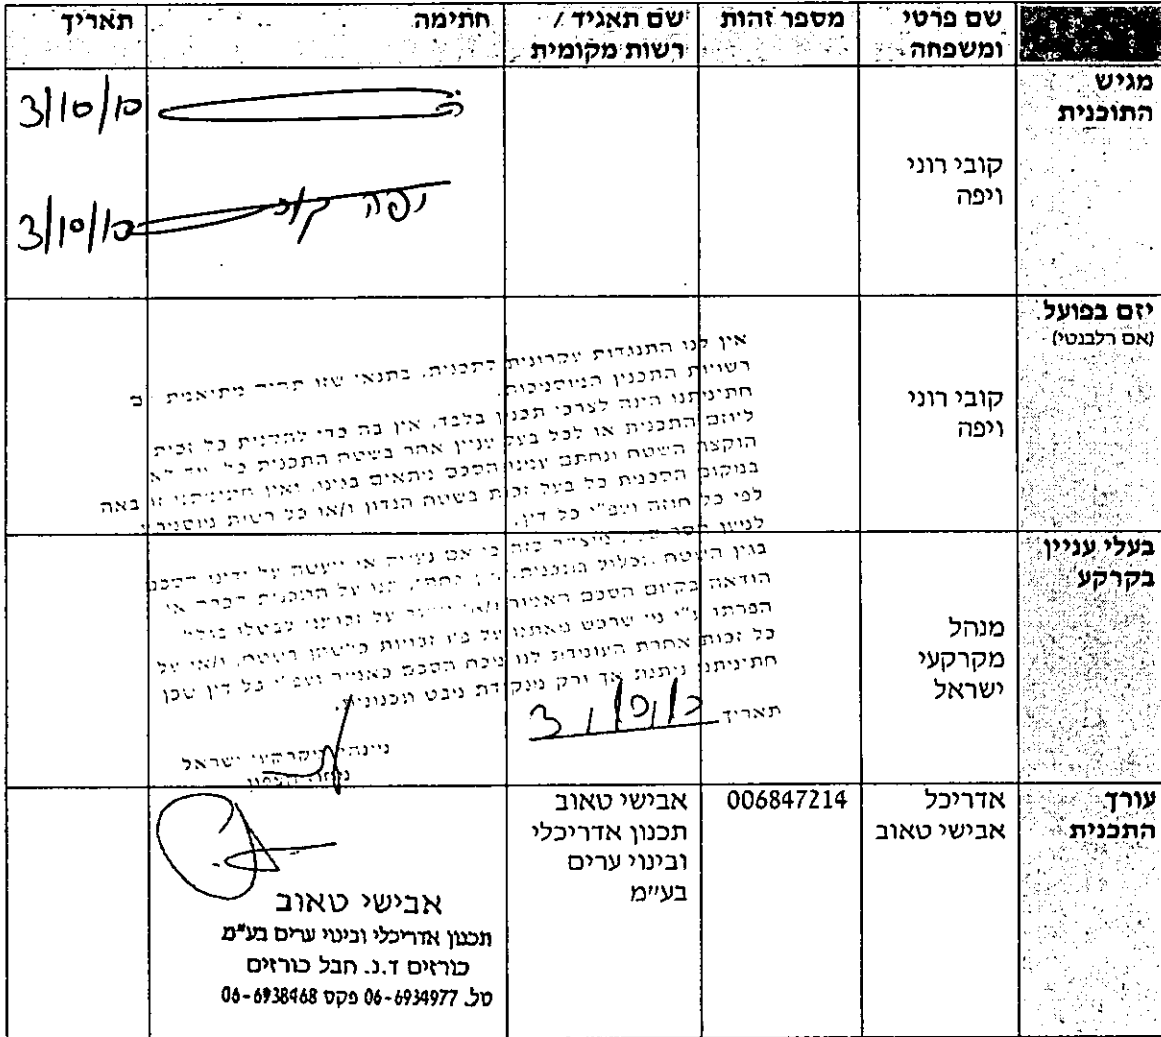 שם פרטי ומשפחה
מספר זהות
שם תאגיד / רשות מקומית
חתימה
תאריך
מגיש התוכנית
קובי רוני ויפה
3/10/10
יפה קובי
3/10/10
יזם בפועל
(אם רלבנטי)
קובי רוני ויפה
אין לנו התנגדות עקרונית לתכנית, בתנאי שזו תהיה מתואמת
רשויות התכנון המוסמכות.
חתימתנו הינה לצרכי תכנון בלבד, אין בה כדי להקנות כל זכות
ליוזם התכנית או לכל בעל עניין אחר בשטח התכנית כל עוד לא
הוקצה השטח ונחתם עמנו הסכם מתאים בגינו, ואין חתימתנו זו באה
במקום הסכמת כל בעל זכות בשטח הנדון ו/או כל רשות מוסמכת,
לפי כל חוזה ועפ"י כל דין.
בעלי עניין בקרקע
מנהל מקרקעי ישראל
כל זכות אחרת העומדת לנו מכח הסכם כאמור ועפ"י כל דין שכן
חתימתנו ניתנת אך ורק מנקודת מבט תכנונית.
תאריך
מינהל מקרקעי ישראל
עורך התכנית
אדריכל אבישי טאוב
006847214
אבישי טאוב תכנון אדריכלי ובינוי ערים בע"מ
אבישי טאוב
תכנון אדריכלי ובינוי ערים בע"מ
כורזים ד.נ. חבל כורזים
טל. 06-6934977 פקס 06-6938468